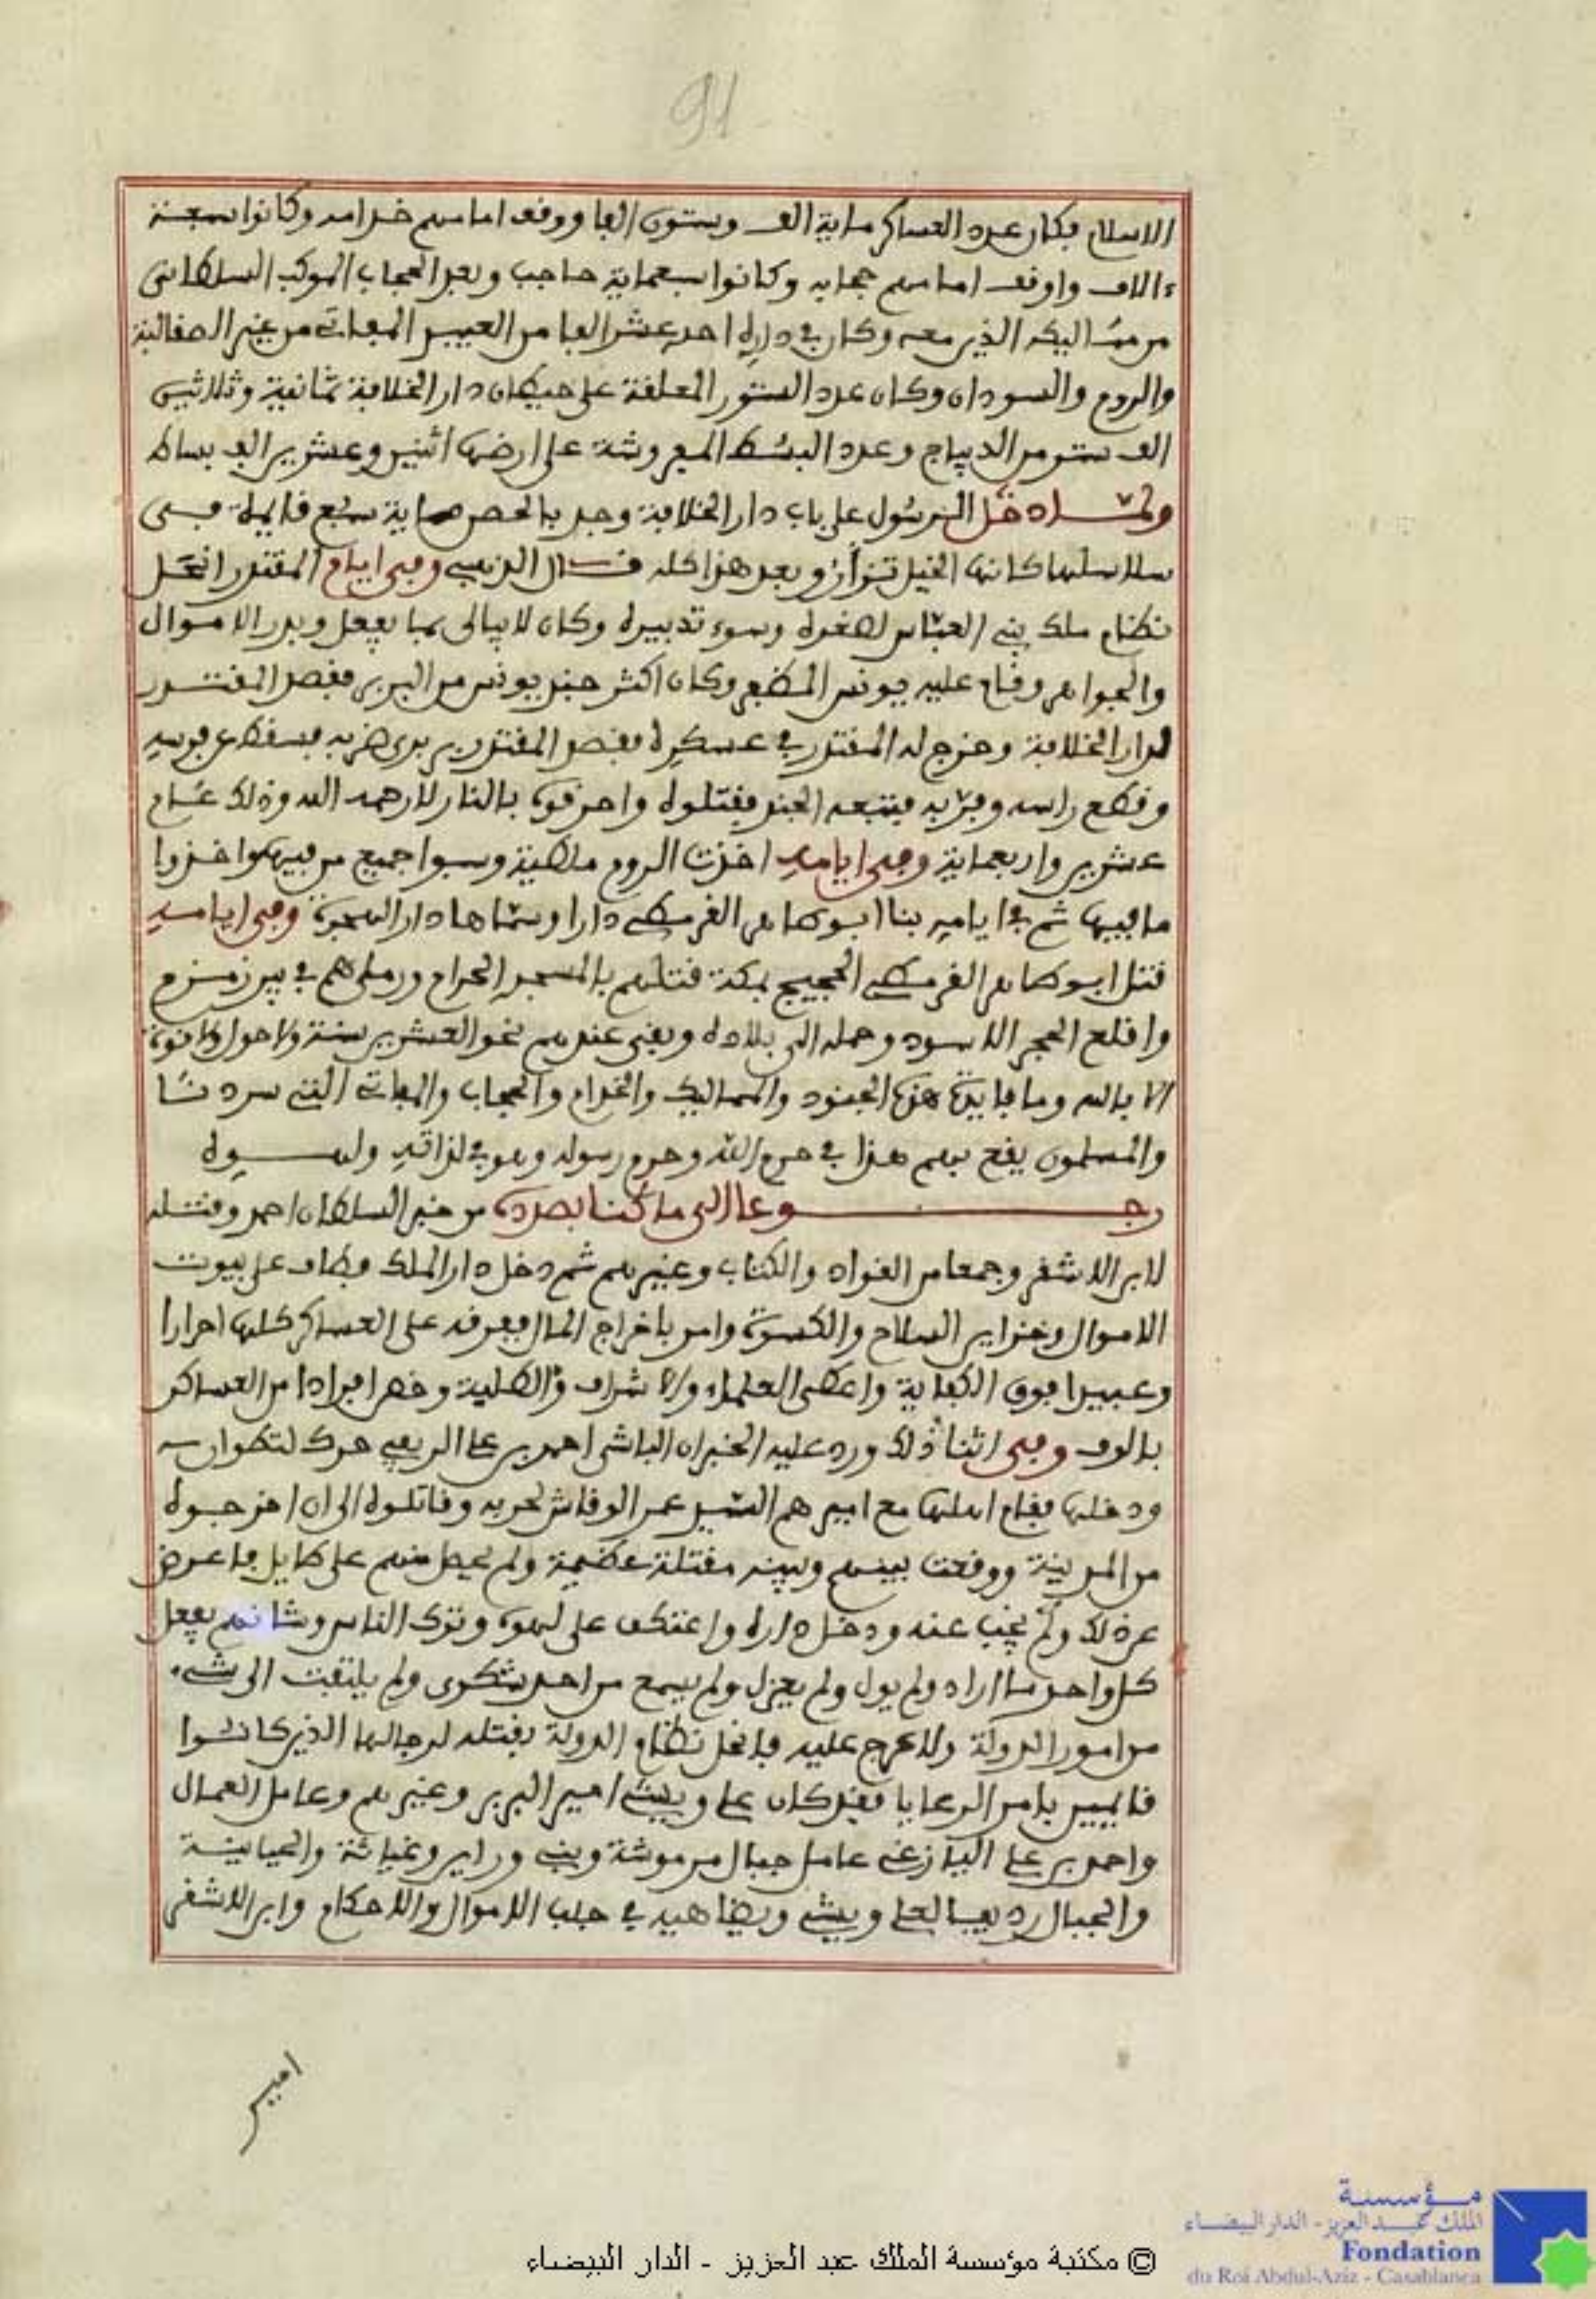 91
الاسلام فكان عدد العساكر ماية الف وستون الفا ووقف امامهم خدامه وكانوا سبعة
ءالاف واوقف امامهم حجابه وكانوا سبعماية حاجب وبعد الحجاب الموكب السلطاني
من مماليكه الذين معه وكان في داره احد عشر الفا من العبيد من غير الصقالبة
والروم والسودان وكان عدد الستور المعلقة على حيطان دار الخلافة ثمانية وثلاثين
الف ستر من الديباج وعدد البسط المفروشة على ارضها اثنين وعشرين الف بساط
ولما دخل الرسول على باب دار الخلافة وجد بالحصر ماية سبع قايمة في
سلاسلها كانها الخيل تزأر وبعد هذا كله قال الذهبي وفي ايام المقتدر انحل
نظام ملك بني العباس لصغره وسوء تدبيره وكان لا يبالي بما يفعل وبدر الاموال
والجواهر وقام عليه يونس المظفر وكان اكثر جند يونس من البربر فقصد المقتدر
لدار الخلافة وخرج له المقتدر في عسكره فقصد المقتدر بربري ضربه فسقط عن فرسه
وقطع راسه وفر به فتبعه الجند فقتلوه واحرقوه بالنار لا رحمه الله وذلك عام
عشرين واربعماية وفي ايامه اخذت الروم ملطية وسبوا جميع من فيها واخذوا
ما فيها ثم في ايامه بنا ابو طاهر القرمطي دارا وسماها دار الهجرة وفي ايامه
قتل ابو طاهر القرمطي الحجيج بمكة قتلهم بالمسجد الحرام ورملهم في بير زمزم
واقلع الحجر الاسود وحمله الى بلاده وبقي عندهم نحو العشرين سنة ولا حول ولا قوة
الا بالله وما فايدة هذه الجنود والمماليك والخدام والحجاب التي سردنا
والمسلمون يقع بهم هذا في حرم الله وحرم رسوله وهو في لذاته ولهوه
رجوعا الى ما كنا بصدده من خبر السلطان احمد وقتله
لابن الاشقر وجمعا من القواد والكتاب وغيرهم ثم دخل دار الملك فطاف على بيوت
الاموال وخزاين السلاح والكسوة وامر باخراج المال ففرقه على العساكر كلها احرارا
وعبيدا فوق الكفاية واعطى العلماء والاشراف والطلبة وخص افرادا من العساكر
بالوف وفي اثناء ذلك ورد عليه الخبر ان الباشى احمد بن علي الريفي حرك لتطوان
ودخلها فقام اهلها مع اميرهم السيد عمر الوقاش لحربه وقاتلوه الى ان اخرجوه
من المدينة ووقعت بينهم وبينه مقتلة عظيمة ولم يحصل منهم على طايل فاعرض
عن ذلك ولم يجب عنه ودخل داره واعتكف على لهوه وترك الناس وشانهم يفعل
كل واحد ما اراد ولم يول ولم يعزل ولم يسمع من احد شكوى ولم يلتفت الى شيء
من امور الدولة ولا عرج عليه فانحل نظام الدولة بقتله لرجالها الذين كانوا
قايمين بامر الرعايا فقد كان علي ويشي امير البربر وغيرهم وعامل العمال
واحمد بن علي عامل جبال مرموشة وبني وراين وغياثة والحياينة
والجبال رديفا لعلي ويشي ويضاهيه في جلب الاموال والاحكام وابن الاشقر
امير
مؤسسة
الملك عبد العزيز - الدار البيضاء
Fondation
du Roi Abdul-Aziz - Casablanca
© مكتبة مؤسسة الملك عبد العزيز - الدار البيضاء